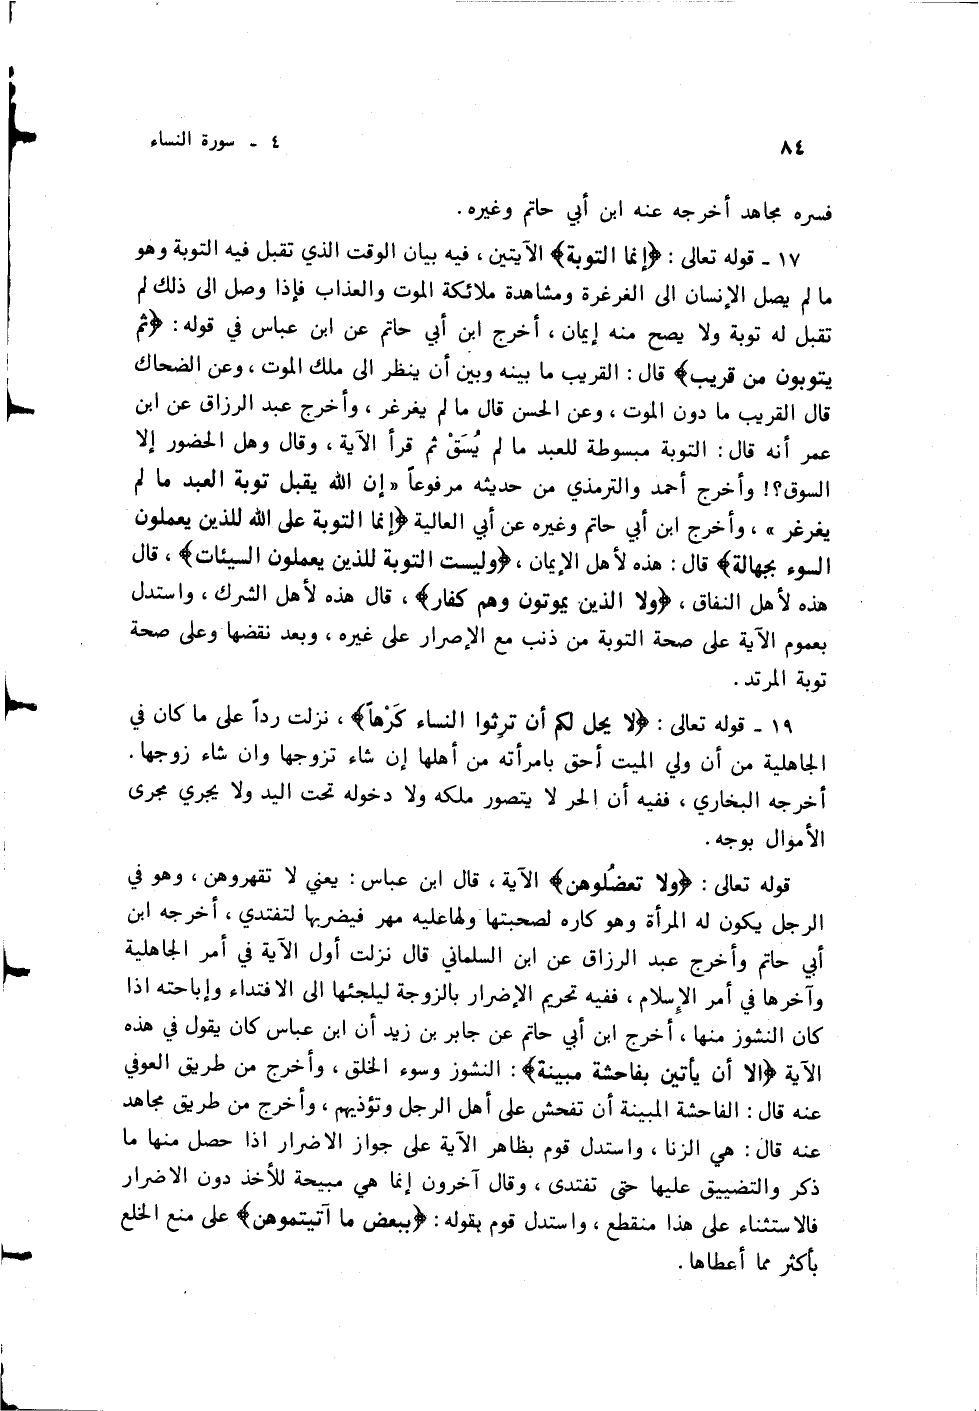 ٨٤
٤ - سورة النساء
فسره مجاهد أخرجه عنه ابن أبي حاتم وغيره.
١٧ - قوله تعالى: ﴿إنما التوبة﴾ الآيتين، فيه بيان الوقت الذي تقبل فيه التوبة وهو
ما لم يصل الإنسان الى الغرغرة ومشاهدة ملائكة الموت والعذاب فإذا وصل الى ذلك لم
تقبل له توبة ولا يصح منه إيمان، أخرج ابن أبي حاتم عن ابن عباس في قوله: ﴿ثم
يتوبون من قريب﴾ قال: القريب ما بينه وبين أن ينظر الى ملك الموت، وعن الضحاك
قال القريب ما دون الموت، وعن الحسن قال ما لم يغرغر، وأخرج عبد الرزاق عن ابن
عمر أنه قال: التوبة مبسوطة للعبد ما لم يُسَقْ ثم قرأ الآية، وقال وهل الحضور إلا
السوق؟! وأخرج أحمد والترمذي من حديثه مرفوعاً «إن الله يقبل توبة العبد ما لم
يغرغر»، وأخرج ابن أبي حاتم وغيره عن أبي العالية ﴿إنما التوبة على الله للذين يعملون
السوء بجهالة﴾ قال: هذه لأهل الإيمان، ﴿وليست التوبة للذين يعملون السيئات﴾، قال
هذه لأهل النفاق، ﴿ولا الذين يموتون وهم كفار﴾، قال هذه لأهل الشرك، واستدل
بعموم الآية على صحة التوبة من ذنب مع الإصرار على غيره، وبعد نقضها وعلى صحة
توبة المرتد.
١٩ - قوله تعالى: ﴿لا يحل لكم أن ترِثوا النساء كَرْهاً﴾، نزلت رداً على ما كان في
الجاهلية من أن ولي الميت أحق بامرأته من أهلها إن شاء تزوجها وان شاء زوجها.
أخرجه البخاري، ففيه أن الحر لا يتصور ملكه ولا دخوله تحت اليد ولا يجري مجرى
الأموال بوجه.
قوله تعالى: ﴿ولا تعضُلوهن﴾ الآية، قال ابن عباس: يعني لا تقهروهن، وهو في
الرجل يكون له المرأة وهو كاره لصحبتها ولهاعليه مهر فيضربها لتفتدي، أخرجه ابن
أبي حاتم وأخرج عبد الرزاق عن ابن السلماني قال نزلت أول الآية في أمر الجاهلية
وآخرها في أمر الإسلام، ففيه تحريم الإضرار بالزوجة ليلجئها الى الافتداء وإباحته اذا
كان النشوز منها، أخرج ابن أبي حاتم عن جابر بن زيد أن ابن عباس كان يقول في هذه
الآية ﴿الا أن يأتين بفاحشة مبينة﴾: النشوز وسوء الخلق، وأخرج من طريق العوفي
عنه قال: الفاحشة المبينة أن تفحش على أهل الرجل وتؤذيهم، وأخرج من طريق مجاهد
عنه قال: هي الزنا، واستدل قوم بظاهر الآية على جواز الاضرار اذا حصل منها ما
ذكر والتضييق عليها حتى تفتدى، وقال آخرون إنما هي مبيحة للأخذ دون الاضرار
فالاستثناء على هذا منقطع، واستدل قوم بقوله: ﴿ببعض ما آتيتموهن﴾ على منع الخلع
بأكثر مما أعطاها.